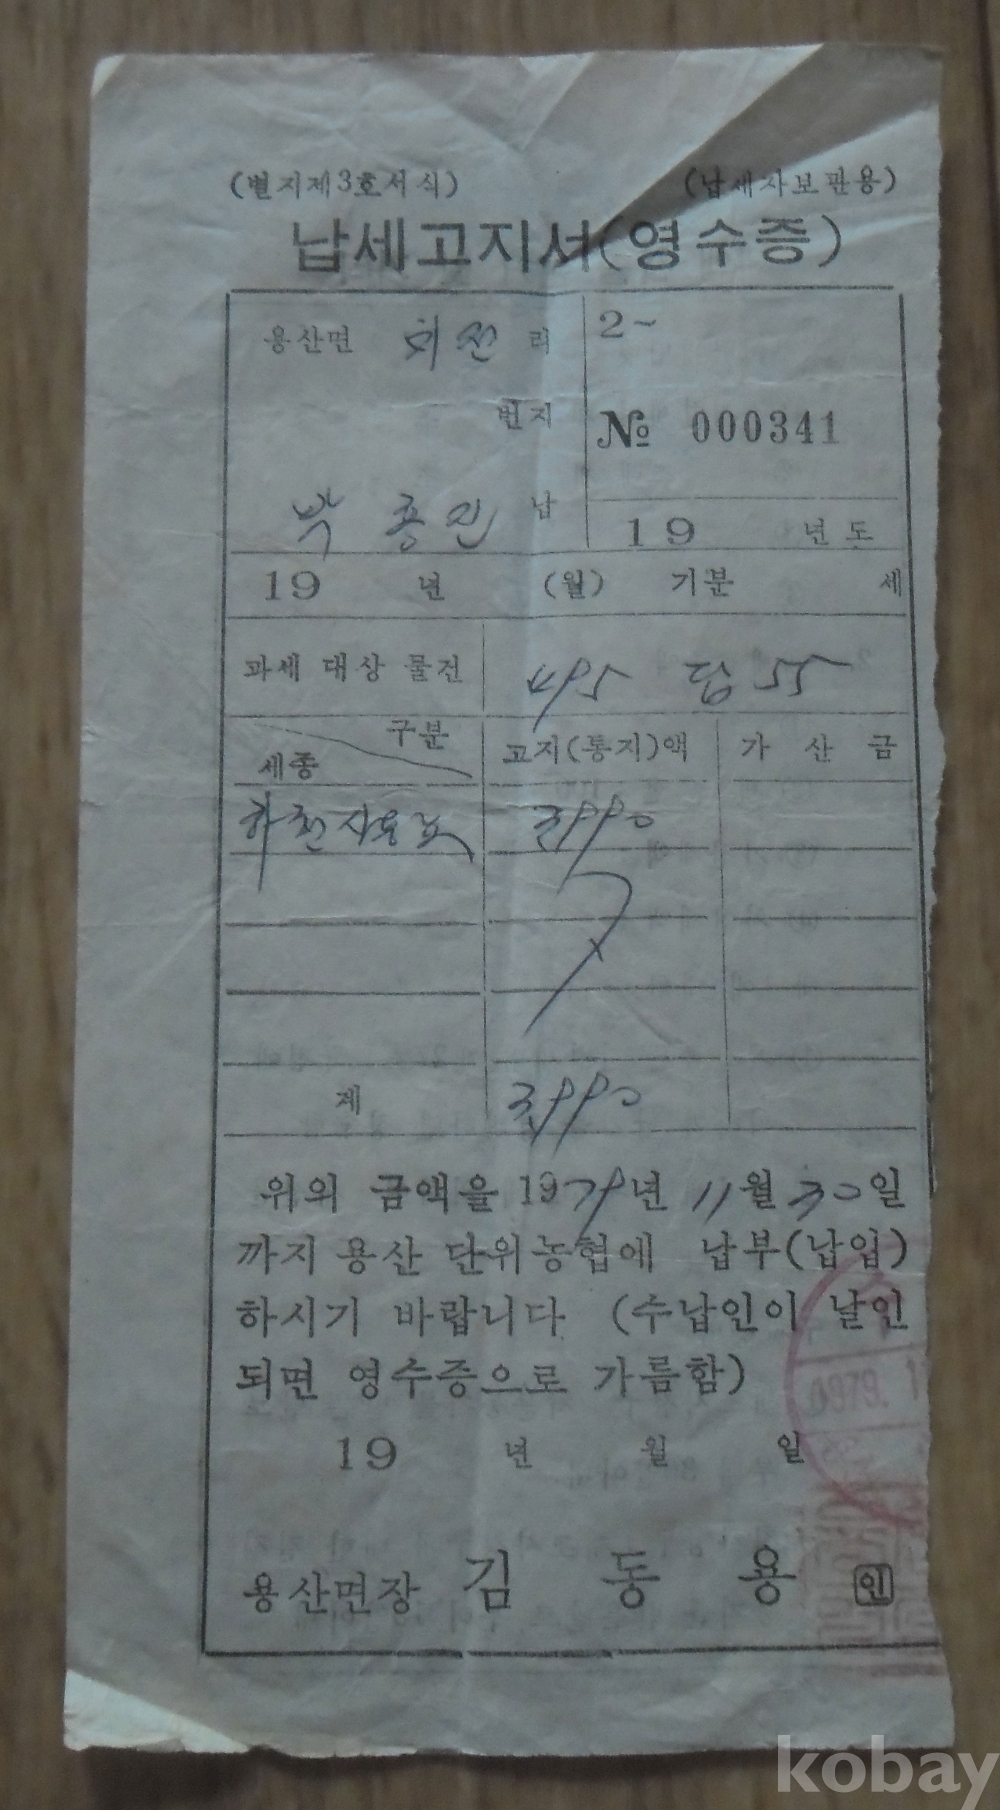 (별지제3호서식) (납세자보관용)
납세고지서(영수증)
용산면 리 2~
번지 № 000341
박 종진 납 19 년도
19 년 (월) 기분 세
과세 대상 물건 495 답 55
구분 고지(통지)액 가 산 금
세종
하천사용료 3990
계 3990
위의 금액을 1979년 11월 30일
까지 용산 단위농협에 납부(납입)
하시기 바랍니다 (수납인이 날인
되면 영수증으로 가름함)
19 년 월 일
1979. 1
용산면장 김 동 용 인
kobay